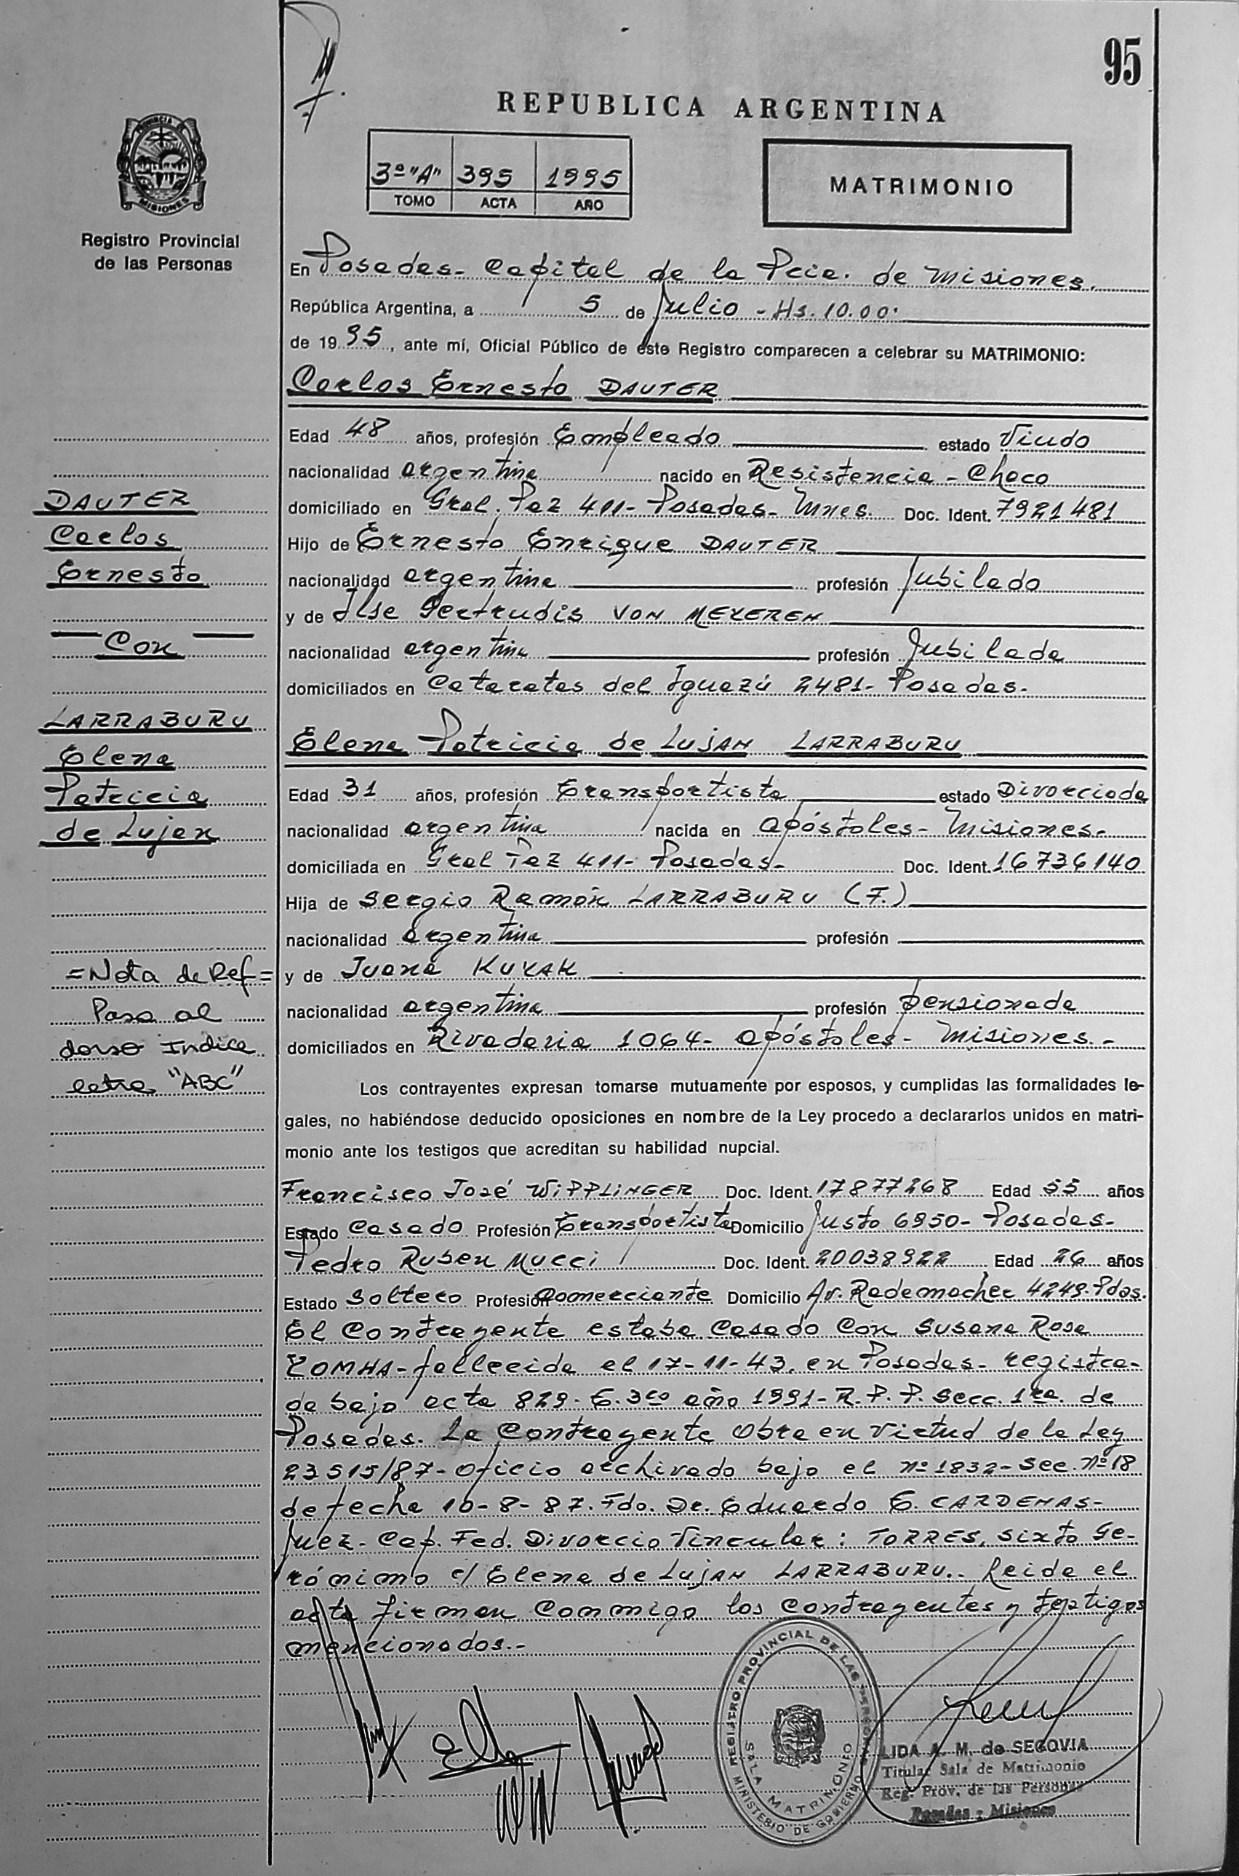 95
REPUBLICA ARGENTINA
3º "A" 395 1995
TOMO ACTA AÑO
MATRIMONIO
PROVINCIA
MISIONES
Registro Provincial
de las Personas
En Posadas- Capital de la Pcia. de Misiones.
República Argentina, a 5 de Julio - Hs. 10.00.
de 19 95, ante mí, Oficial Público de este Registro comparecen a celebrar su MATRIMONIO:
Carlos Ernesto DAUTER
Edad 48 años, profesión Empleado estado Viudo
nacionalidad argentina nacido en Resistencia - Chaco
domiciliado en Gral. Paz 411- Posadas- Mnes. Doc. Ident. 7921481
Hijo de Ernesto Enrique DAUTER
nacionalidad argentina profesión Jubilado
y de Ilse Gertrudis VON MEYEREN
nacionalidad argentina profesión Jubilada
domiciliados en Cataratas del Iguazú 2481- Posadas.
Elena Patricia de LUJAN LARRABURU
Edad 31 años, profesión Transportista estado Divorciada
nacionalidad argentina nacida en Apóstoles- Misiones-
domiciliada en Gral Paz 411- Posadas- Doc. Ident. 16736140
Hija de Sergio Ramón LARRABURU (F.)
nacionalidad argentina profesión
y de Juana KUYAK
nacionalidad argentina profesión pensionada
domiciliados en Rivadavia 1064- Apóstoles- Misiones.-
Los contrayentes expresan tomarse mutuamente por esposos, y cumplidas las formalidades le-
gales, no habiéndose deducido oposiciones en nombre de la Ley procedo a declararlos unidos en matri-
monio ante los testigos que acreditan su habilidad nupcial.
Francisco José WIPPLINGER Doc. Ident. 17877268 Edad 55 años
Estado Casado Profesión Transportista Domicilio Justo 6950- Posadas-
Pedro Ruben Mucci Doc. Ident. 20038922 Edad 26 años
Estado Soltero Profesión Comerciante Domicilio Av. Rademacher 4249-Pdas.
El Contrayente estaba Casado Con Susana Rosa
ZOMHA- fallecida el 17-11-43. en Posadas- registra-
da bajo acta 829- T. 3ro año 1991- R. P. P. Secc. 1ra. de
Posadas. La Contrayente Obra en Virtud de la Ley
23515/87- Oficio archivado bajo el nº 1832- Sec. nº 18
de fecha 10-8-87. Fdo. Dr. Eduardo E. CARDENAS-
Juez- Cap. Fed. Divorcio Vincular: TORRES, Sixto Ge-
rónimo c/ Elena de LUJAN LARRABURU.. Leida el
acta firman Conmigo los Contrayentes y testigos
mencionados.-
DAUTER
Carlos
Ernesto
Con
LARRABURU
Elena
Patricia
de Lujan
=Nota de Ref=
Pasa al
dorso Indice
letra "ABC"
REGISTRO PROVINCIAL DE LAS PERSONAS
SALA MATRIMONIO
MINISTERIO DE GOBIERNO
LIDA A. M. de SEGOVIA
Titular Sala de Matrimonio
Reg. Prov. de las Personas
Posadas - Misiones